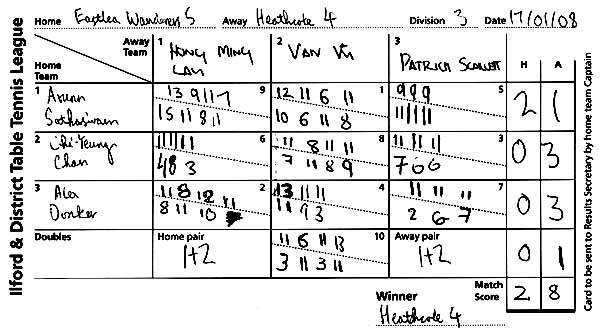 Ilford & District Table Tennis League
Home Eastlea Wanderers 5 Away Heathcote 4 Division 3 Date 17/01/08
Away Team 1 HONG MING LAU 2 VAN VU 3 PATRICK H A
Home Team
1 Arunn 13 9 11 7 9 12 11 6 11 1 9 9 9 5 2 1
15 11 8 11 10 6 11 8 11 11 11
2 Chi-Yeung Chan 11 11 11 6 11 8 11 11 8 11 11 11 3 0 3
4 8 3 7 11 8 9 7 6 6
3 Alex Donker 11 8 12 11 2 13 11 11 4 11 11 11 7 0 3
8 11 10 11 9 3 2 6 7
Doubles Home pair 1+2 11 6 11 13 10 Away pair 1+2 0 1
3 11 3 11
Winner Heathcote 4 Match Score 2 8
Card to be sent to Results Secretary by Home team Captain